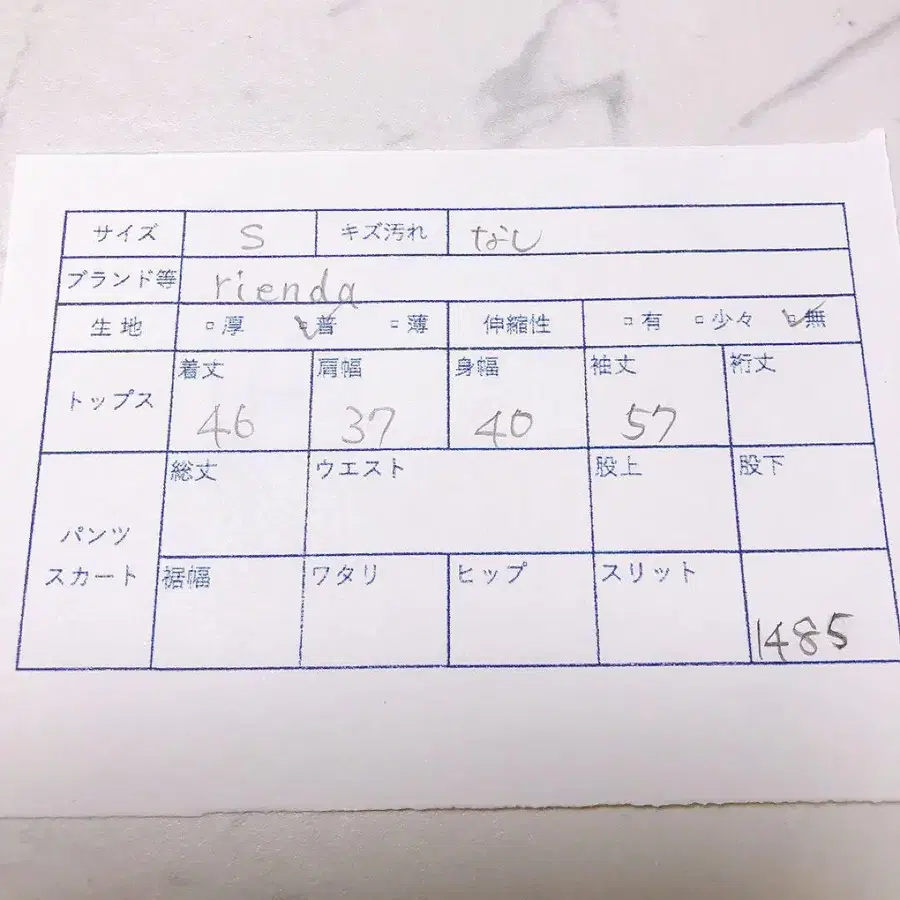 サイズ S キズ汚れ なし
ブランド等 rienda
生地 □厚 ☑普 □薄 伸縮性 □有 □少々 ☑無
トップス 着丈 肩幅 身幅 袖丈 裄丈
46 37 40 57
総丈 ウエスト 股上 股下
パンツ
スカート 裾幅 ワタリ ヒップ スリット
1485